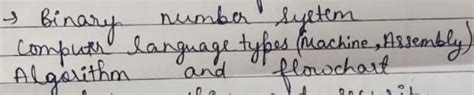 → Binary number system
Computer language types (Machine, Assembly)
Algorithm and flowchart